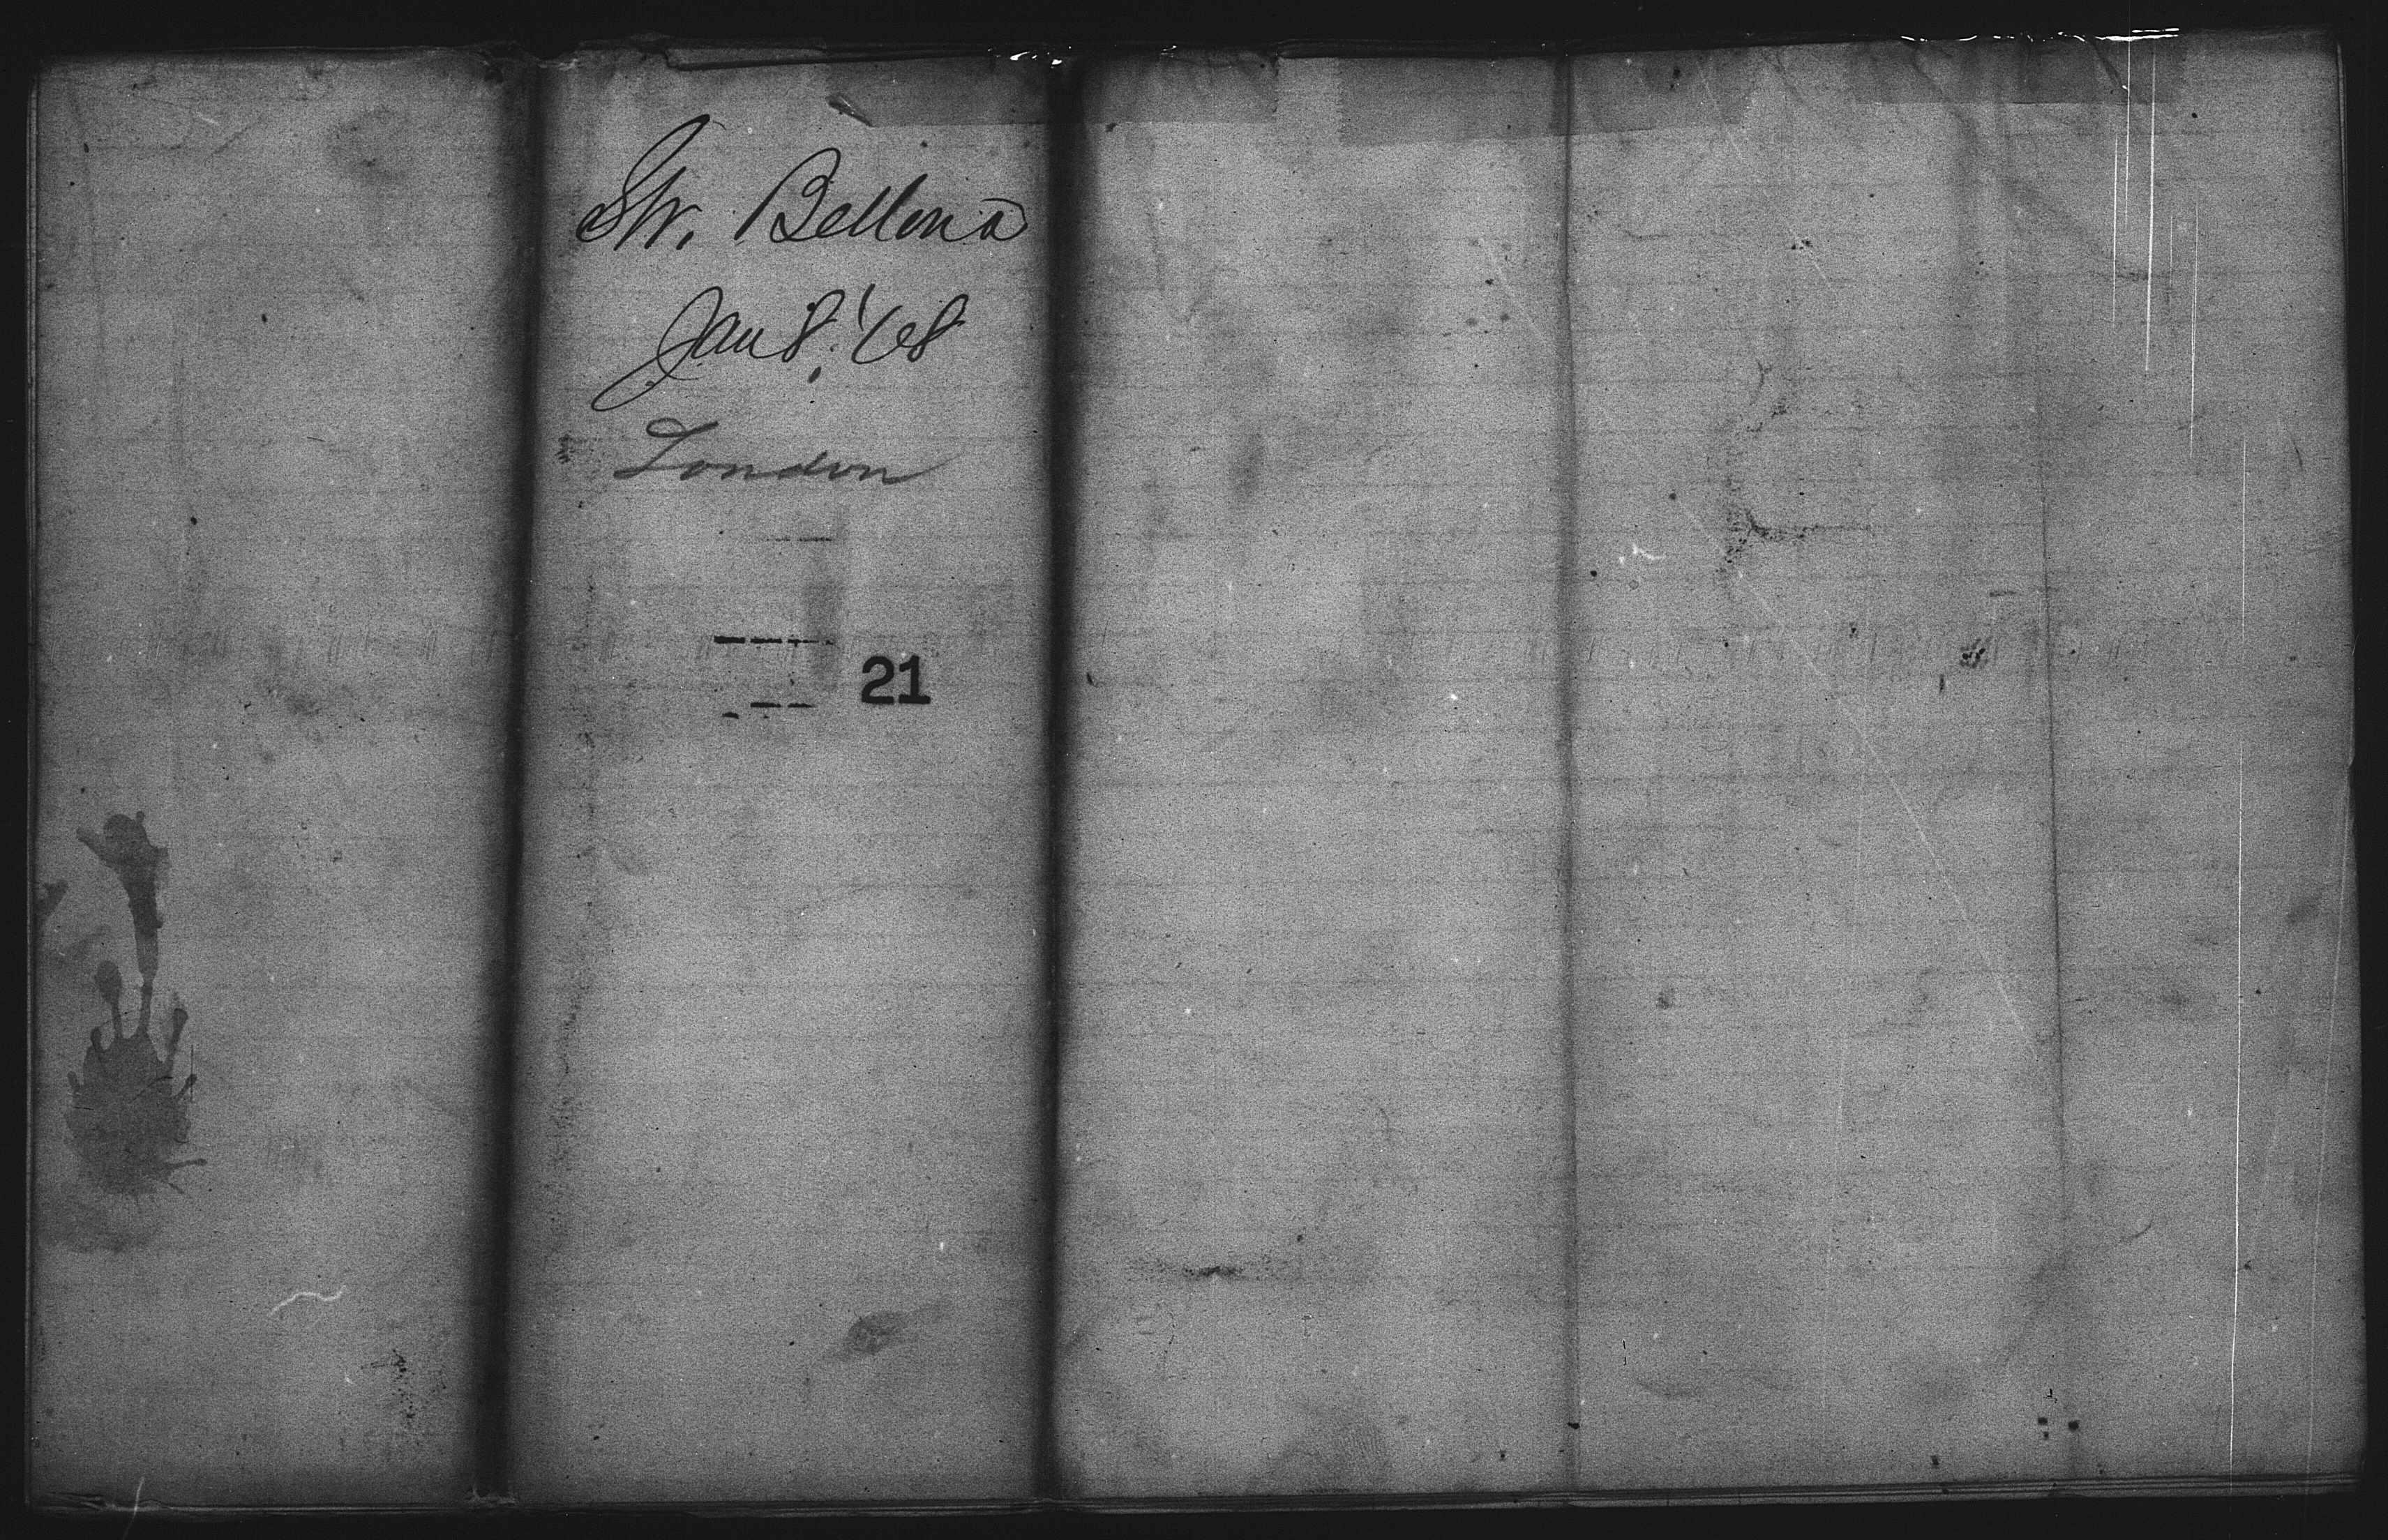 Str. Bellona
Jan 8, '68
London
21